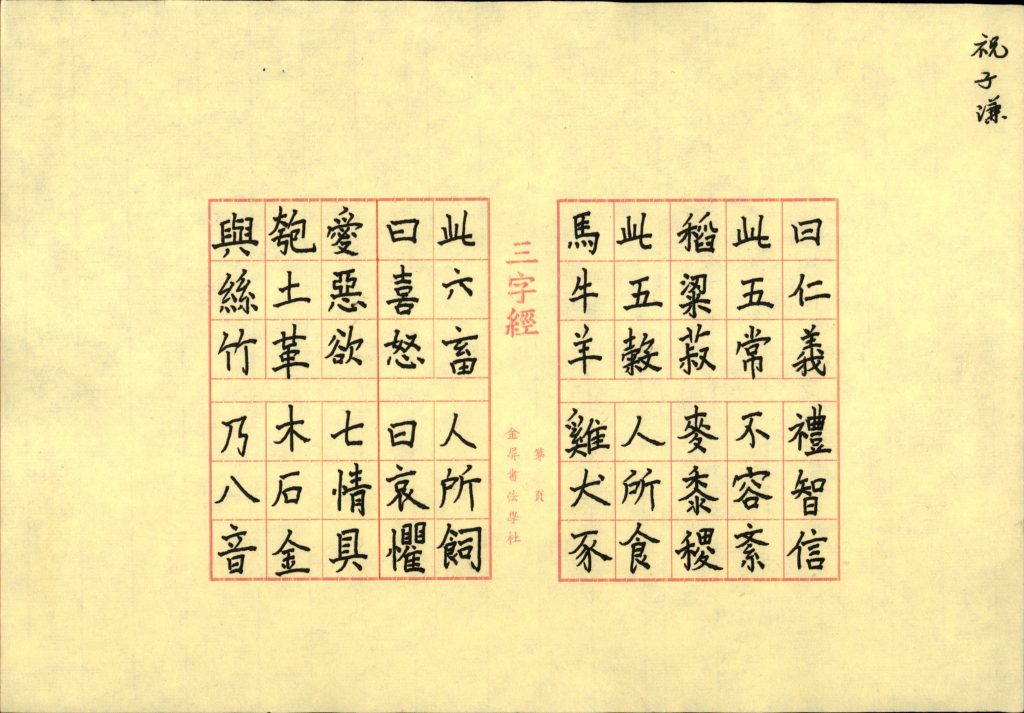 祝子謙
曰仁義 禮智信
此五常 不容紊
稻粱菽 麥黍稷
此五穀 人所食
馬牛羊 雞犬豕
三字經
第 頁
金屏書法學社
此六畜 人所飼
曰喜怒 曰哀懼
愛惡欲 七情具
匏土革 木石金
與絲竹 乃八音